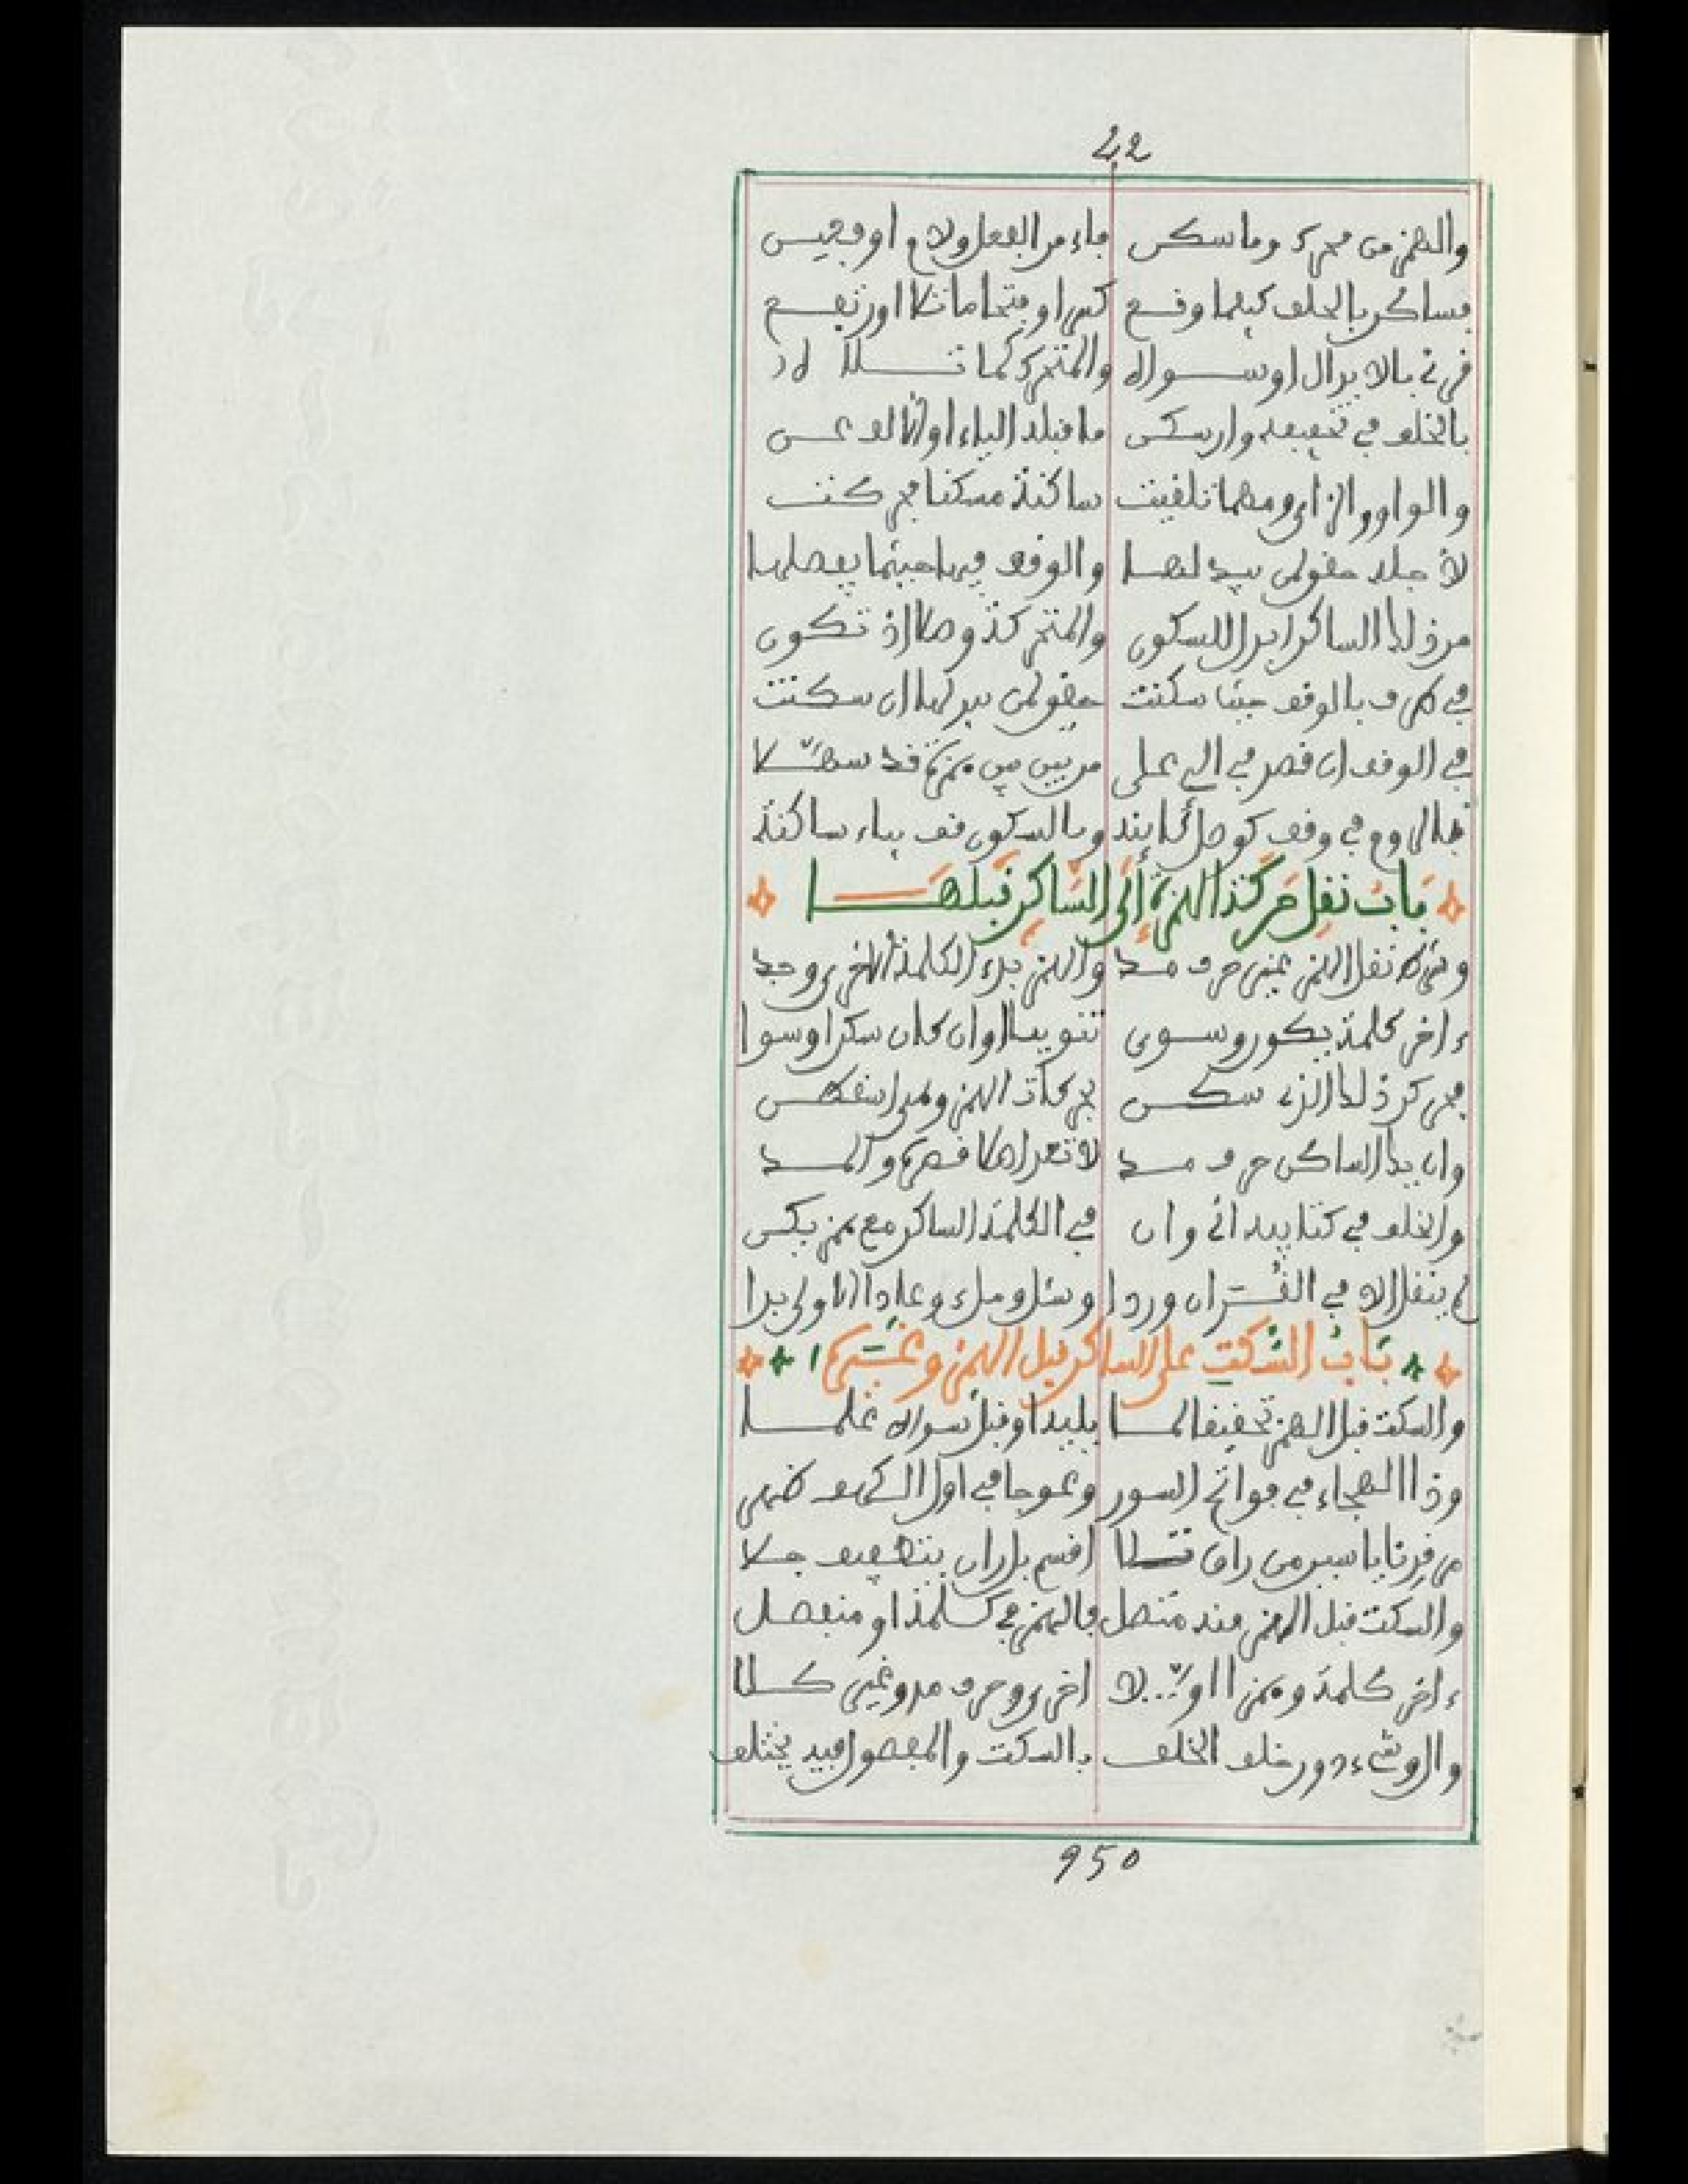 42
والهمز من محرك وما سكن فاء من الفعل ولام او وعين
فساكن بالخلف كيفما وقع كسرا وفتحا ما تلا او رفع
قرئ بالابدال او سواه والمتحرك كما تلاه
بالخلف في تخفيفه وان سكن ما قبله الياء او الالف عن
والواو والزاي ومهما تلفيت ساكنة مسكنا محركت
لاجله فقولن بيدلها والوقف فيها حيثما يفصلها
من ذلك الساكن ابدل للسكون والمتحركة وصلا اذ تكون
في طرف بالوقف حيث سكنت فقولن يبدلها ان سكنت
في الوقف ان قصر في الي على من بين بين همزة قد سهلا
بالروم في وقف كوصل وبالسكون قف بياء ساكنة
باب نقل حركة الهمزة إلى الساكن قبلها
وشرط نقل الهمز غير حرف مد والهمز بدء الكلمة الاخرى وجد
ءاخر كلمة يكون وسوى تنوينا او ان كان سكنا او سوا
فحرك ذلك الذي سكن بحركة الهمز وهي اسقطن
وان يك الساكن حرف مد لا تعد اصلا قصره والمد
والخلف في كتابيه اني وان في الكلمة الساكن مع همز يكن
لم ينقل الا في القرءان وردا وسئل وملء وعادا الاولى بدا
باب السكت على الساكن قبل الهمز وغيره
والسكت قبل الهمز تحقيقا لما يليه او قبل سواه علما
وذا الهجاء في فواتح السور وعوجا في اول الكهف ظهر
مرقدنا ياسين من راق تلا اقسم بل ران بتطفيف جلا
والسكت قبل الهمز منه متصل فالهمز في كلمة او منفصل
ءاخر كلمة وهمز اولا اخرى وحرف مد وغير كلا
والو شيء دون خلف الخلف بالسكت والمفصول فيه يختلف
950